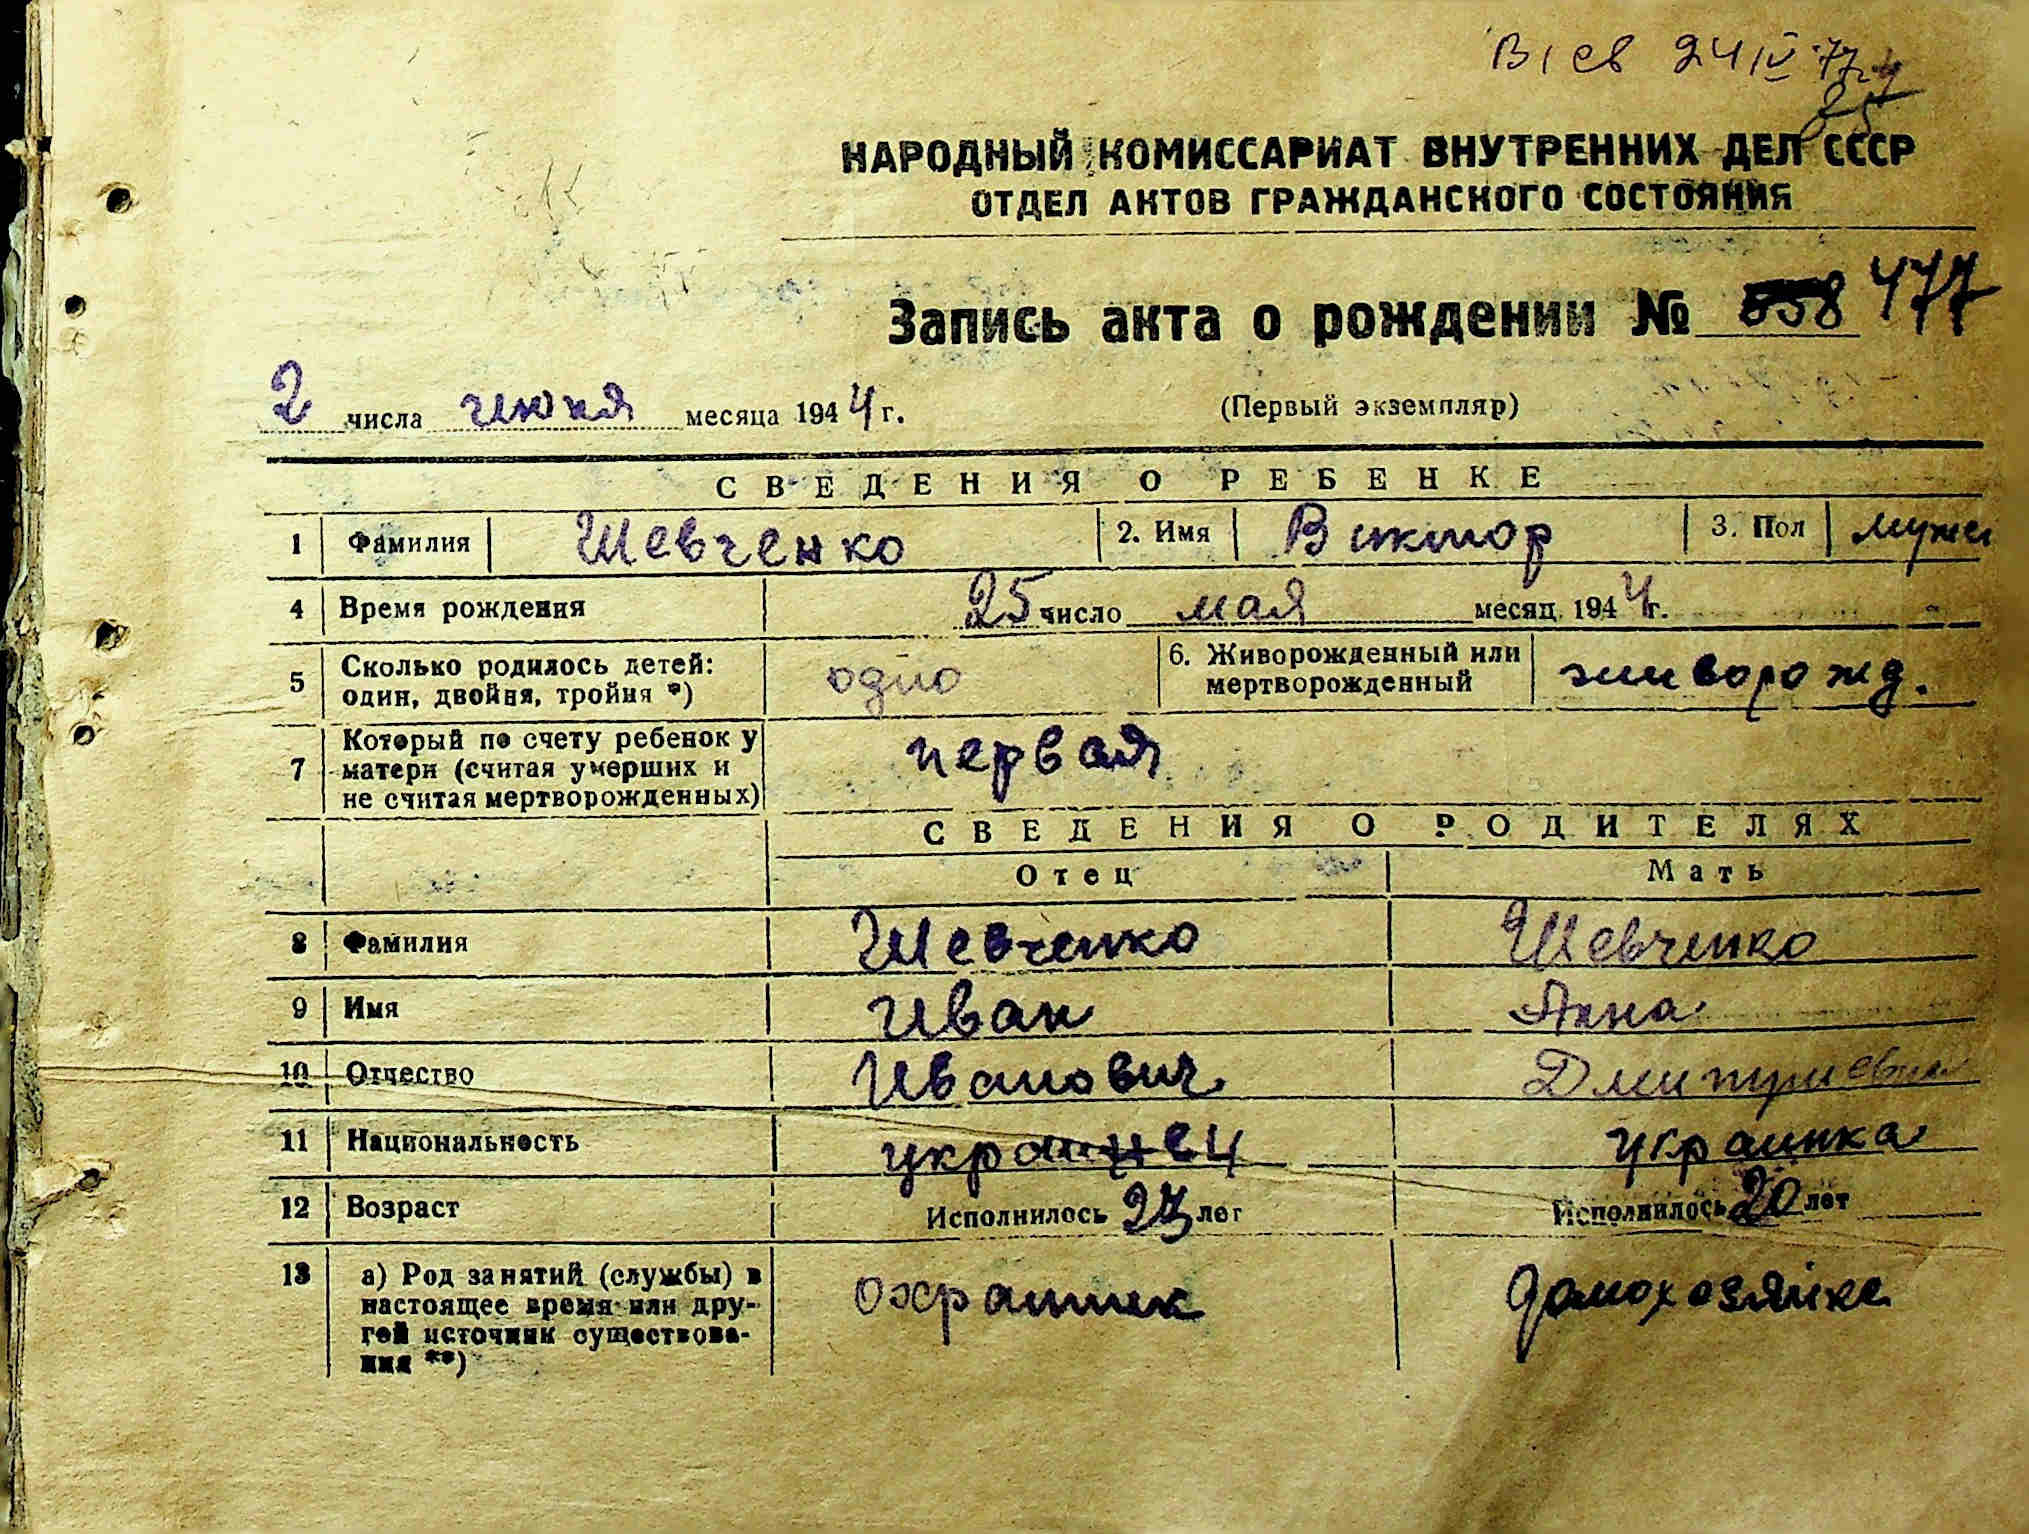 В/св 24 IV 77
НАРОДНЫЙ КОМИССАРИАТ ВНУТРЕННИХ ДЕЛ СССР
ОТДЕЛ АКТОВ ГРАЖДАНСКОГО СОСТОЯНИЯ
Запись акта о рождении № 558 477
2 числа июня месяца 1944 г. (Первый экземпляр)
СВЕДЕНИЯ О РЕБЕНКЕ
1 Фамилия Шевченко 2. Имя Виктор 3. Пол мужск
4 Время рождения 25 число мая месяц 1944 г.
5 Сколько родилось детей: один, двойня, тройня *) одно 6. Живорожденный или мертворожденный живорожд.
7 Который по счету ребенок у матери (считая умерших и не считая мертворожденных) первая
СВЕДЕНИЯ О РОДИТЕЛЯХ
Отец Мать
8 Фамилия Шевченко Шевченко
9 Имя Иван Анна
10 Отчество Иванович Дмитриевна
11 Национальность украинец украинка
12 Возраст Исполнилось 27 лет Исполнилось 20 лет
13 а) Род занятий (службы) в настоящее время или другой источник существования **) охранник домохозяйка